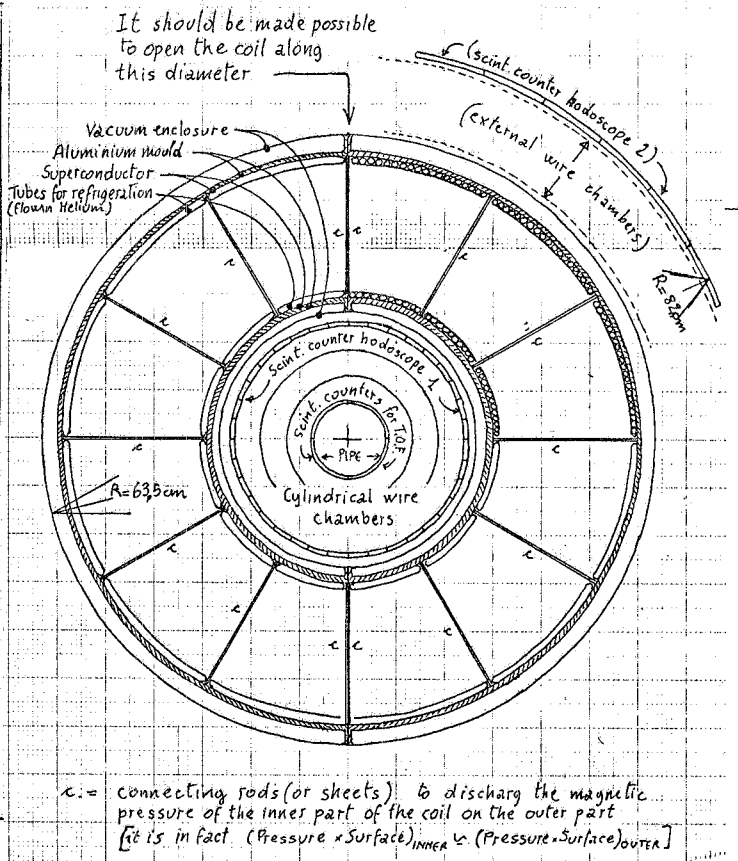 It should be made possible
to open the coil along
this diameter
(scint. counter hodoscope 2)
(external wire chambers)
R=82cm
Vacuum enclosure
Aluminium mould
Superconductor
Tubes for refrigeration
(Flowin Helium)
r
r
r
r
r
r
Scint. counter hodoscope 1
Scint. counters for T.O.F.
PIPE
r
r
R=63,5cm
Cylindrical wire
chambers
r
r
r
r
r
r
r.= connecting rods (or sheets) to discharg the magnetic
pressure of the inner part of the coil on the outer part
[it is in fact (Pressure × Surface)INNER ≃ (Pressure × Surface)OUTER]